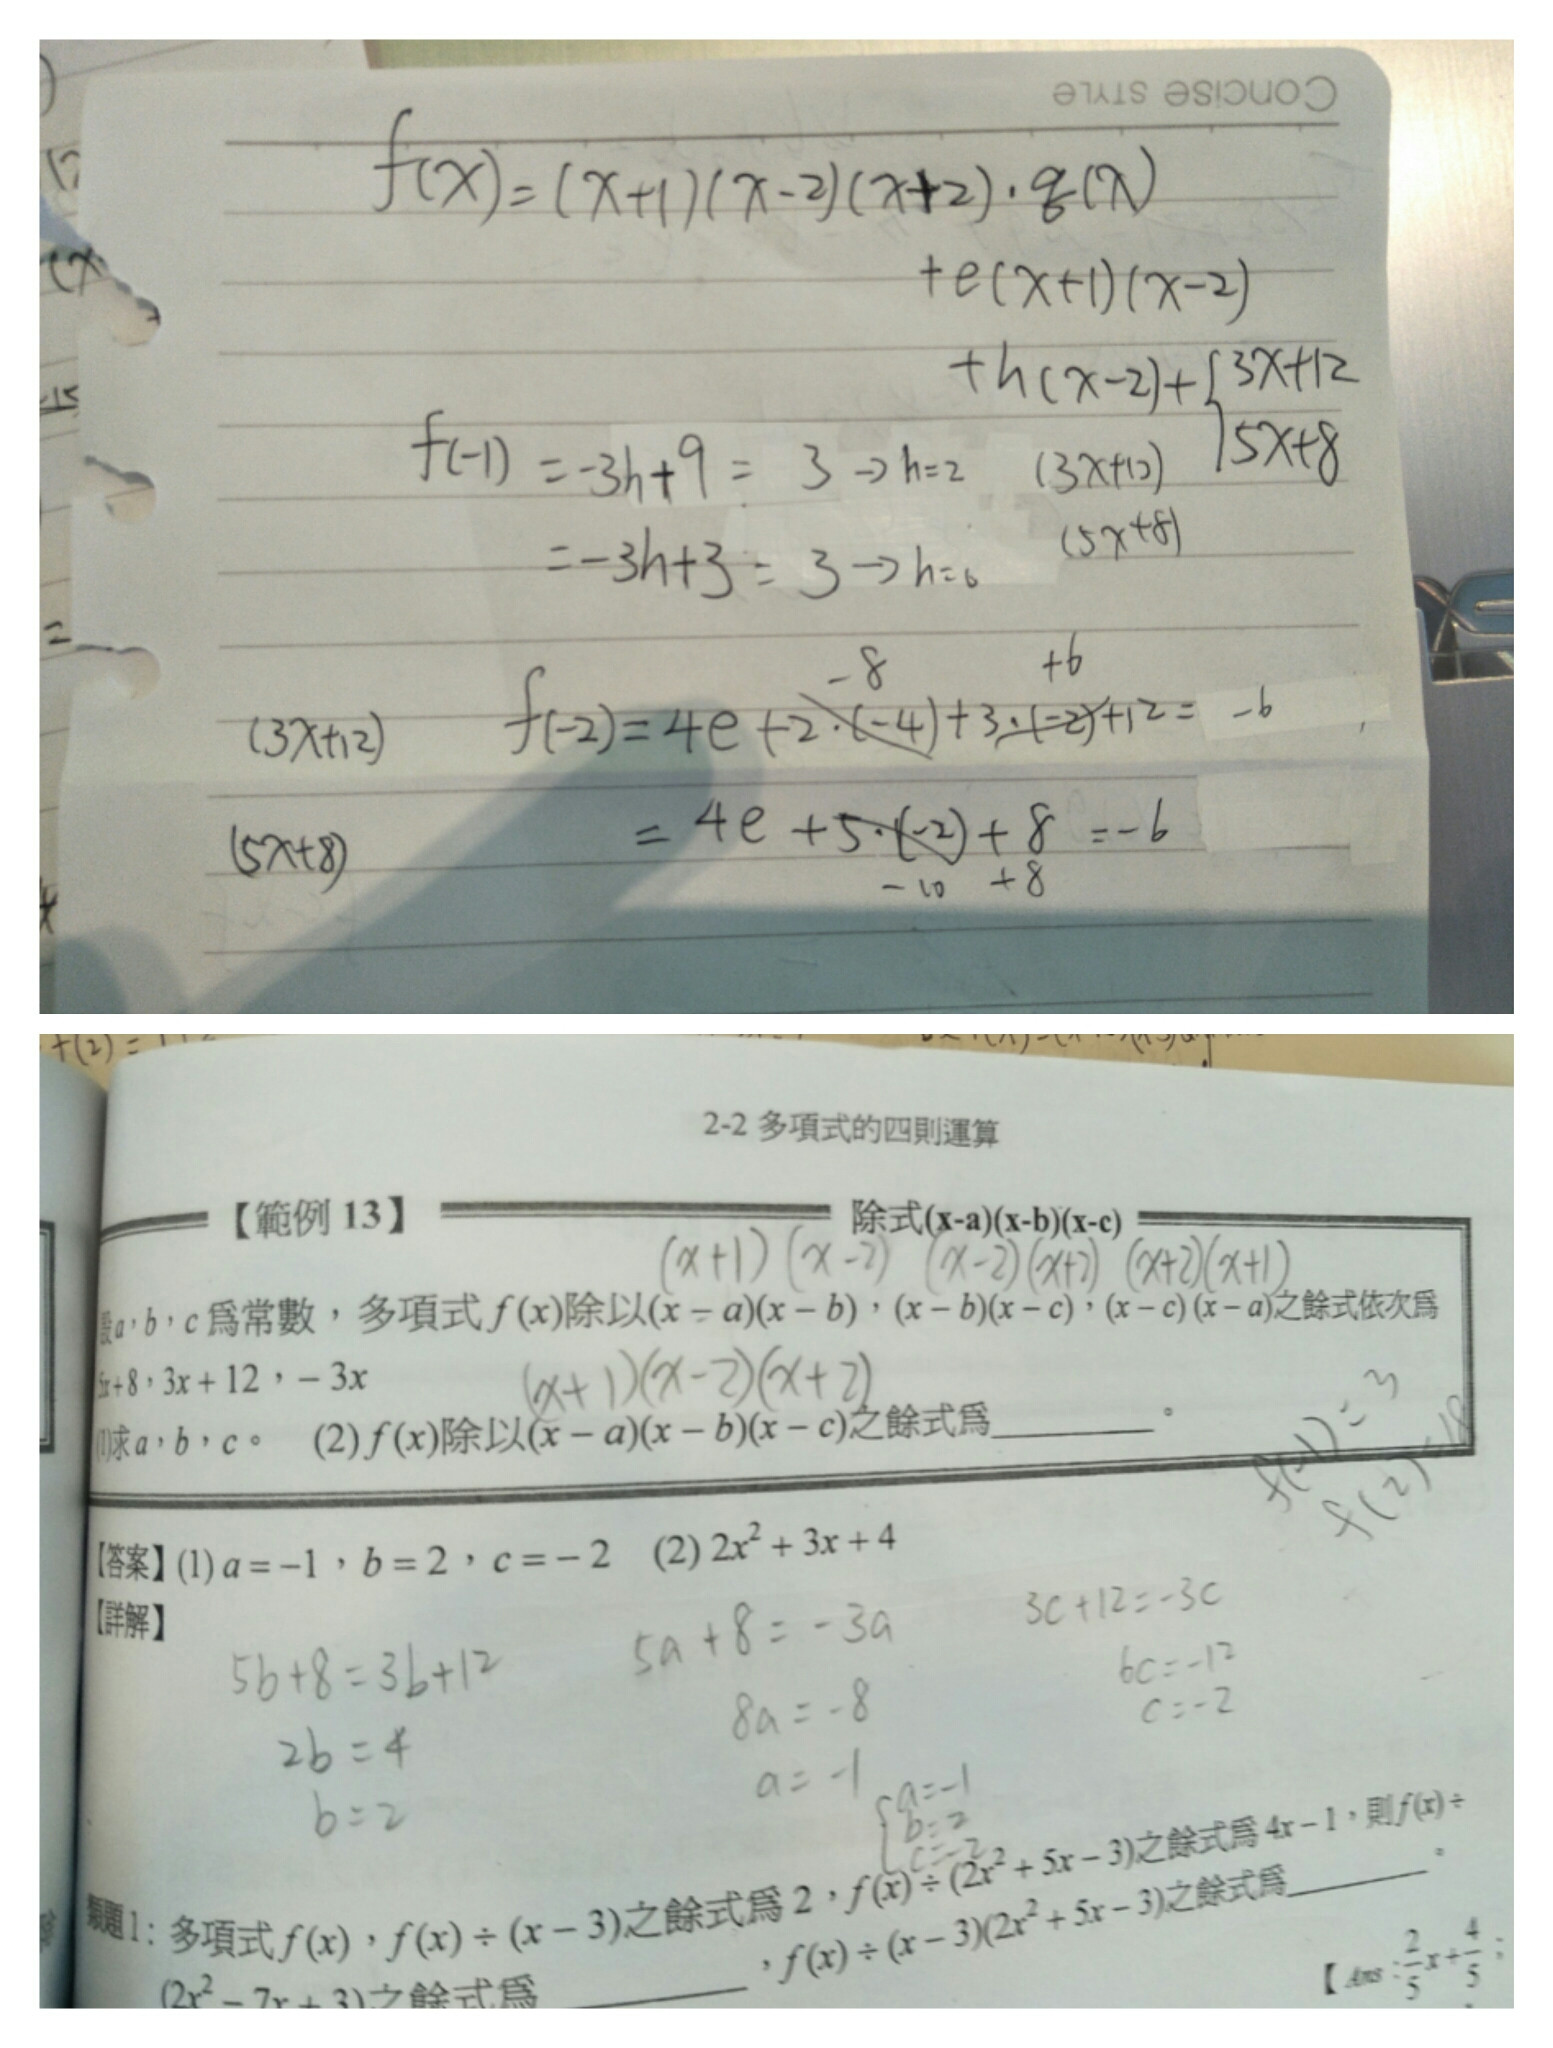 Concise STYLE
f(x)=(x+1)(x-2)(x+2)·q(x)
+e(x+1)(x-2)
+h(x-2)+{3x+12
5x+8
f(-1) =-3h+9= 3→h=2 (3x+12)
=-3h+3=3→h=0 (5x+8)
-8 +6
(3x+12) f(-2)=4e+2·(-4)+3·(-2)+12= -6
(5x+8) = 4e+5·(-2)+8 =-6
-10 +8
2-2 多項式的四則運算
【範例 13】 除式(x-a)(x-b)(x-c)
(x+1)(x-2) (x-2)(x+2) (x+2)(x+1)
設a,b,c為常數,多項式f(x)除以(x-a)(x-b),(x-b)(x-c),(x-c)(x-a)之餘式依次為
5x+8,3x+12,-3x
(x+1)(x-2)(x+2)
(1)求a,b,c。 (2)f(x)除以(x-a)(x-b)(x-c)之餘式為。
f(-1)=3
f(2)=18
【答案】(1) a=-1,b=2,c=-2 (2) 2x²+3x+4
【詳解】
5b+8=3b+12 5a+8=-3a 3c+12=-3c
2b=4 8a=-8 6c=-12
b=2 a=-1 c=-2
{a=-1
b=2
c=-2
類題1:多項式f(x),f(x)÷(x-3)之餘式為2,f(x)÷(2x²+5x-3)之餘式為4x-1,則f(x)÷
(2x²-7x+3)之餘式為,f(x)÷(x-3)(2x²+5x-3)之餘式為。
【Ans:2/5x+4/5;